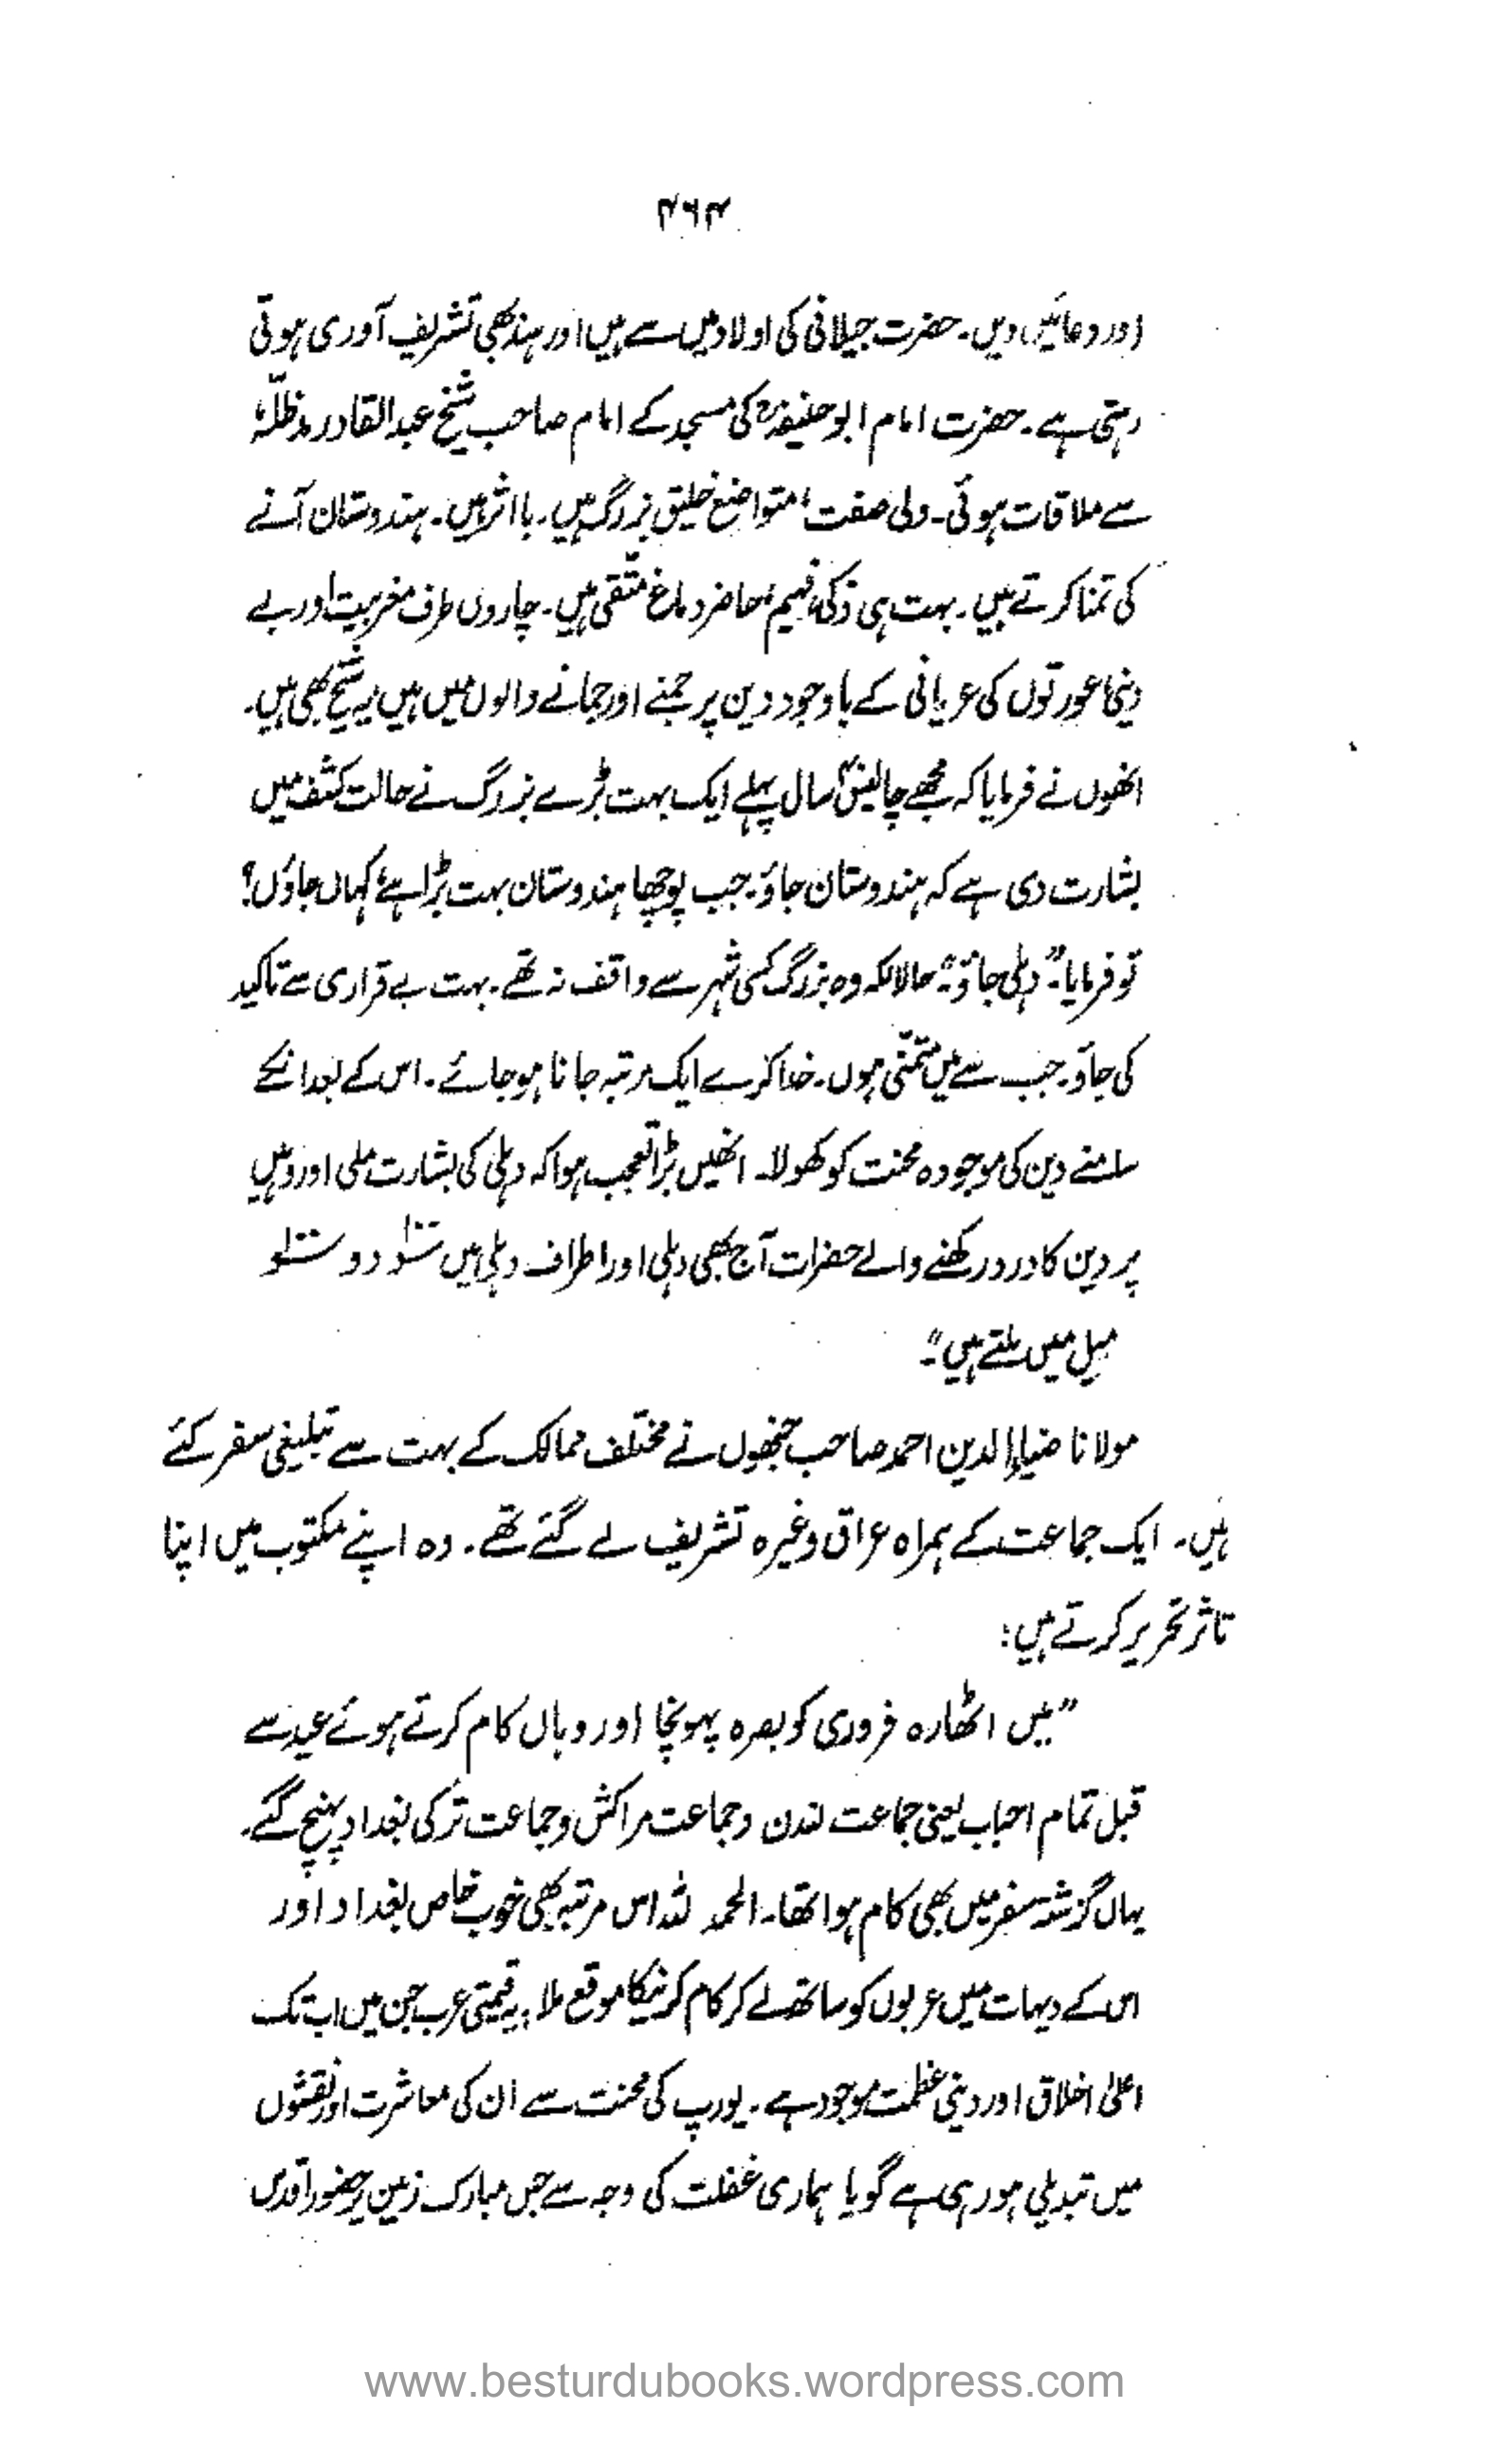 ۴۶۴
اور دعائیں دیں۔ حضرت جیلانی کی اولاد میں سے ہیں اور ہند بھی تشریف آوری ہوتی
رہتی ہے۔ حضرت امام ابو حنیفہؒ کی مسجد کے امام صاحب شیخ عبد القادر مدظلّہٗ
سے ملاقات ہوئی۔ ولی صفت، متواضع خلیق بزرگ ہیں۔ با اثر ہیں۔ ہندوستان آنے
کی تمنا کرتے ہیں۔ بہت ہی ذکی، فہیم، حاضر دماغ متقی ہیں۔ چاروں طرف مغربیت اور بے
دینی، عورتوں کی عریانی کے باوجود دین پر جمنے اور جمانے والوں میں ہیں یہ شیخ بھی ہیں۔
انھوں نے فرمایا کہ مجھے چالیس سال پہلے ایک بہت بڑے بزرگ نے حالت کشف میں
بشارت دی ہے کہ ہندوستان جاؤ۔ جب پوچھا ہندوستان بہت بڑا ہے، کہاں جاؤں؟
تو فرمایا۔ "دہلی جاؤ"۔ حالانکہ وہ بزرگ کسی شہر سے واقف نہ تھے۔ بہت بے قراری سے تاکید
کی جاؤ۔ جب سے میں متمنّی ہوں۔ خدا کرے ایک مرتبہ جانا ہو جائے۔ اس کے بعد انکے
سامنے دین کی موجودہ محنت کو کھولا۔ انھیں بڑا تعجب ہوا کہ دہلی کی بشارت ملی اور وہیں
پر دین کا درد رکھنے والے حضرات آج بھی دہلی اور اطراف دہلی میں سَو دو سَو
میل میں ملتے ہیں"۔
مولانا ضیاء الدین احمد صاحب جنھوں نے مختلف ممالک کے بہت سے تبلیغی سفر کئے
ہیں۔ ایک جماعت کے ہمراہ عراق وغیرہ تشریف لے گئے تھے۔ وہ اپنے مکتوب میں اپنا
تاثر تحریر کرتے ہیں:
"میں اٹھارہ فروری کو بصرہ پہونچا اور وہاں کام کرتے ہوئے عید سے
قبل تمام احباب یعنی جماعت لندن و جماعت مراکش و جماعت ترکی بغداد پہنچ گئے۔
یہاں گزشتہ سفر میں بھی کام ہوا تھا۔ الحمد للہ اس مرتبہ بھی خوب خاص بغداد اور
اس کے دیہات میں عربوں کو ساتھ لے کر کام کرنیکا موقع ملا، یہ قیمتی عرب جن میں اب تک
اعلیٰ اخلاق اور دینی عظمت موجود ہے۔ یورپ کی محنت سے ان کی معاشرت اور نقشوں
میں تبدیلی ہو رہی ہے گویا ہماری غفلت کی وجہ سے جس مبارک زمین پر حضور اقدس
www.besturdubooks.wordpress.com